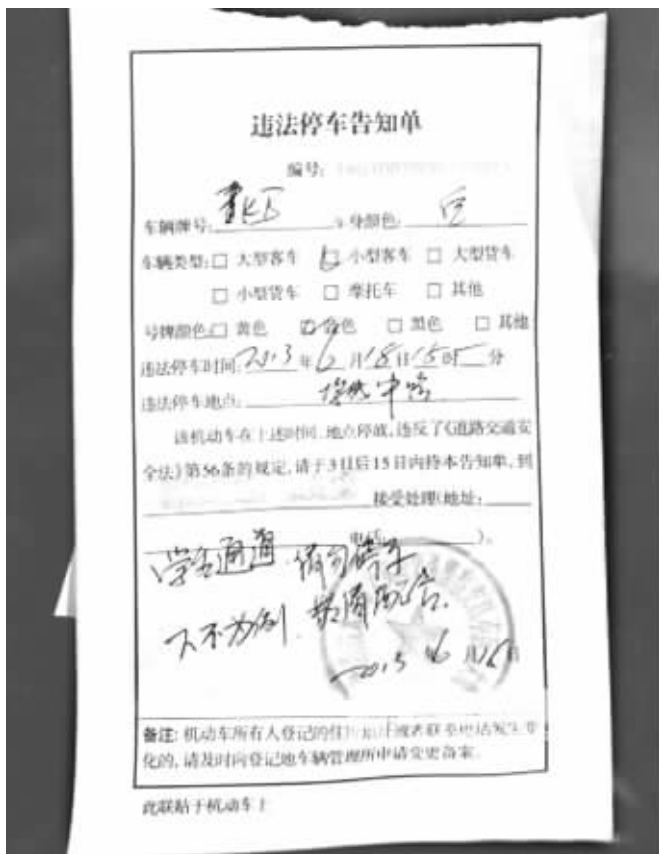 违法停车告知单
编号:
车辆牌号: 车身颜色: 白
车辆类型:□ 大型客车 □ 小型客车 □ 大型货车
□ 小型货车 □ 摩托车 □ 其他
号牌颜色:□ 黄色 □ 蓝色 □ 黑色 □ 其他
违法停车时间: 2013 年 6 月 18 日 15 时 分
违法停车地点: 中路
该机动车在上述时间、地点停放,违反了《道路交通安
全法》第56条的规定,请于3日后15日内持本告知单,到
接受处理(地址:
电话 )。
学会通道
下不为例.
2013 6 月 18 日
备注: 机动车所有人登记的住所地址或者联系电话发生变
化的,请及时向登记地车辆管理所申请变更备案。
此联贴于机动车上